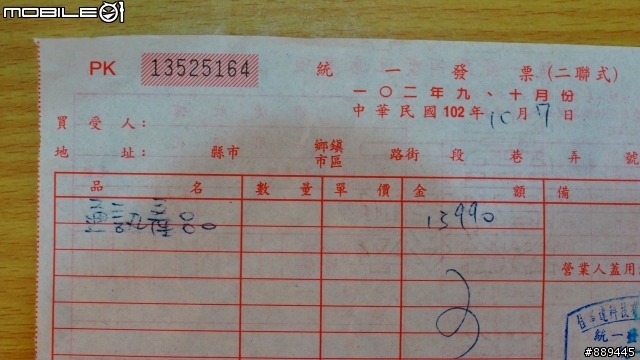 MOBILE01
PK 13525164 統一發票(二聯式)
一〇二年九、十月份
中華民國102年10月7日
買受人:
地址: 縣市 鄉鎮市區 路街 段 巷 弄 號
品名 數量 單價 金額 備
通訊產品 13990
營業人蓋用
統一
#889445